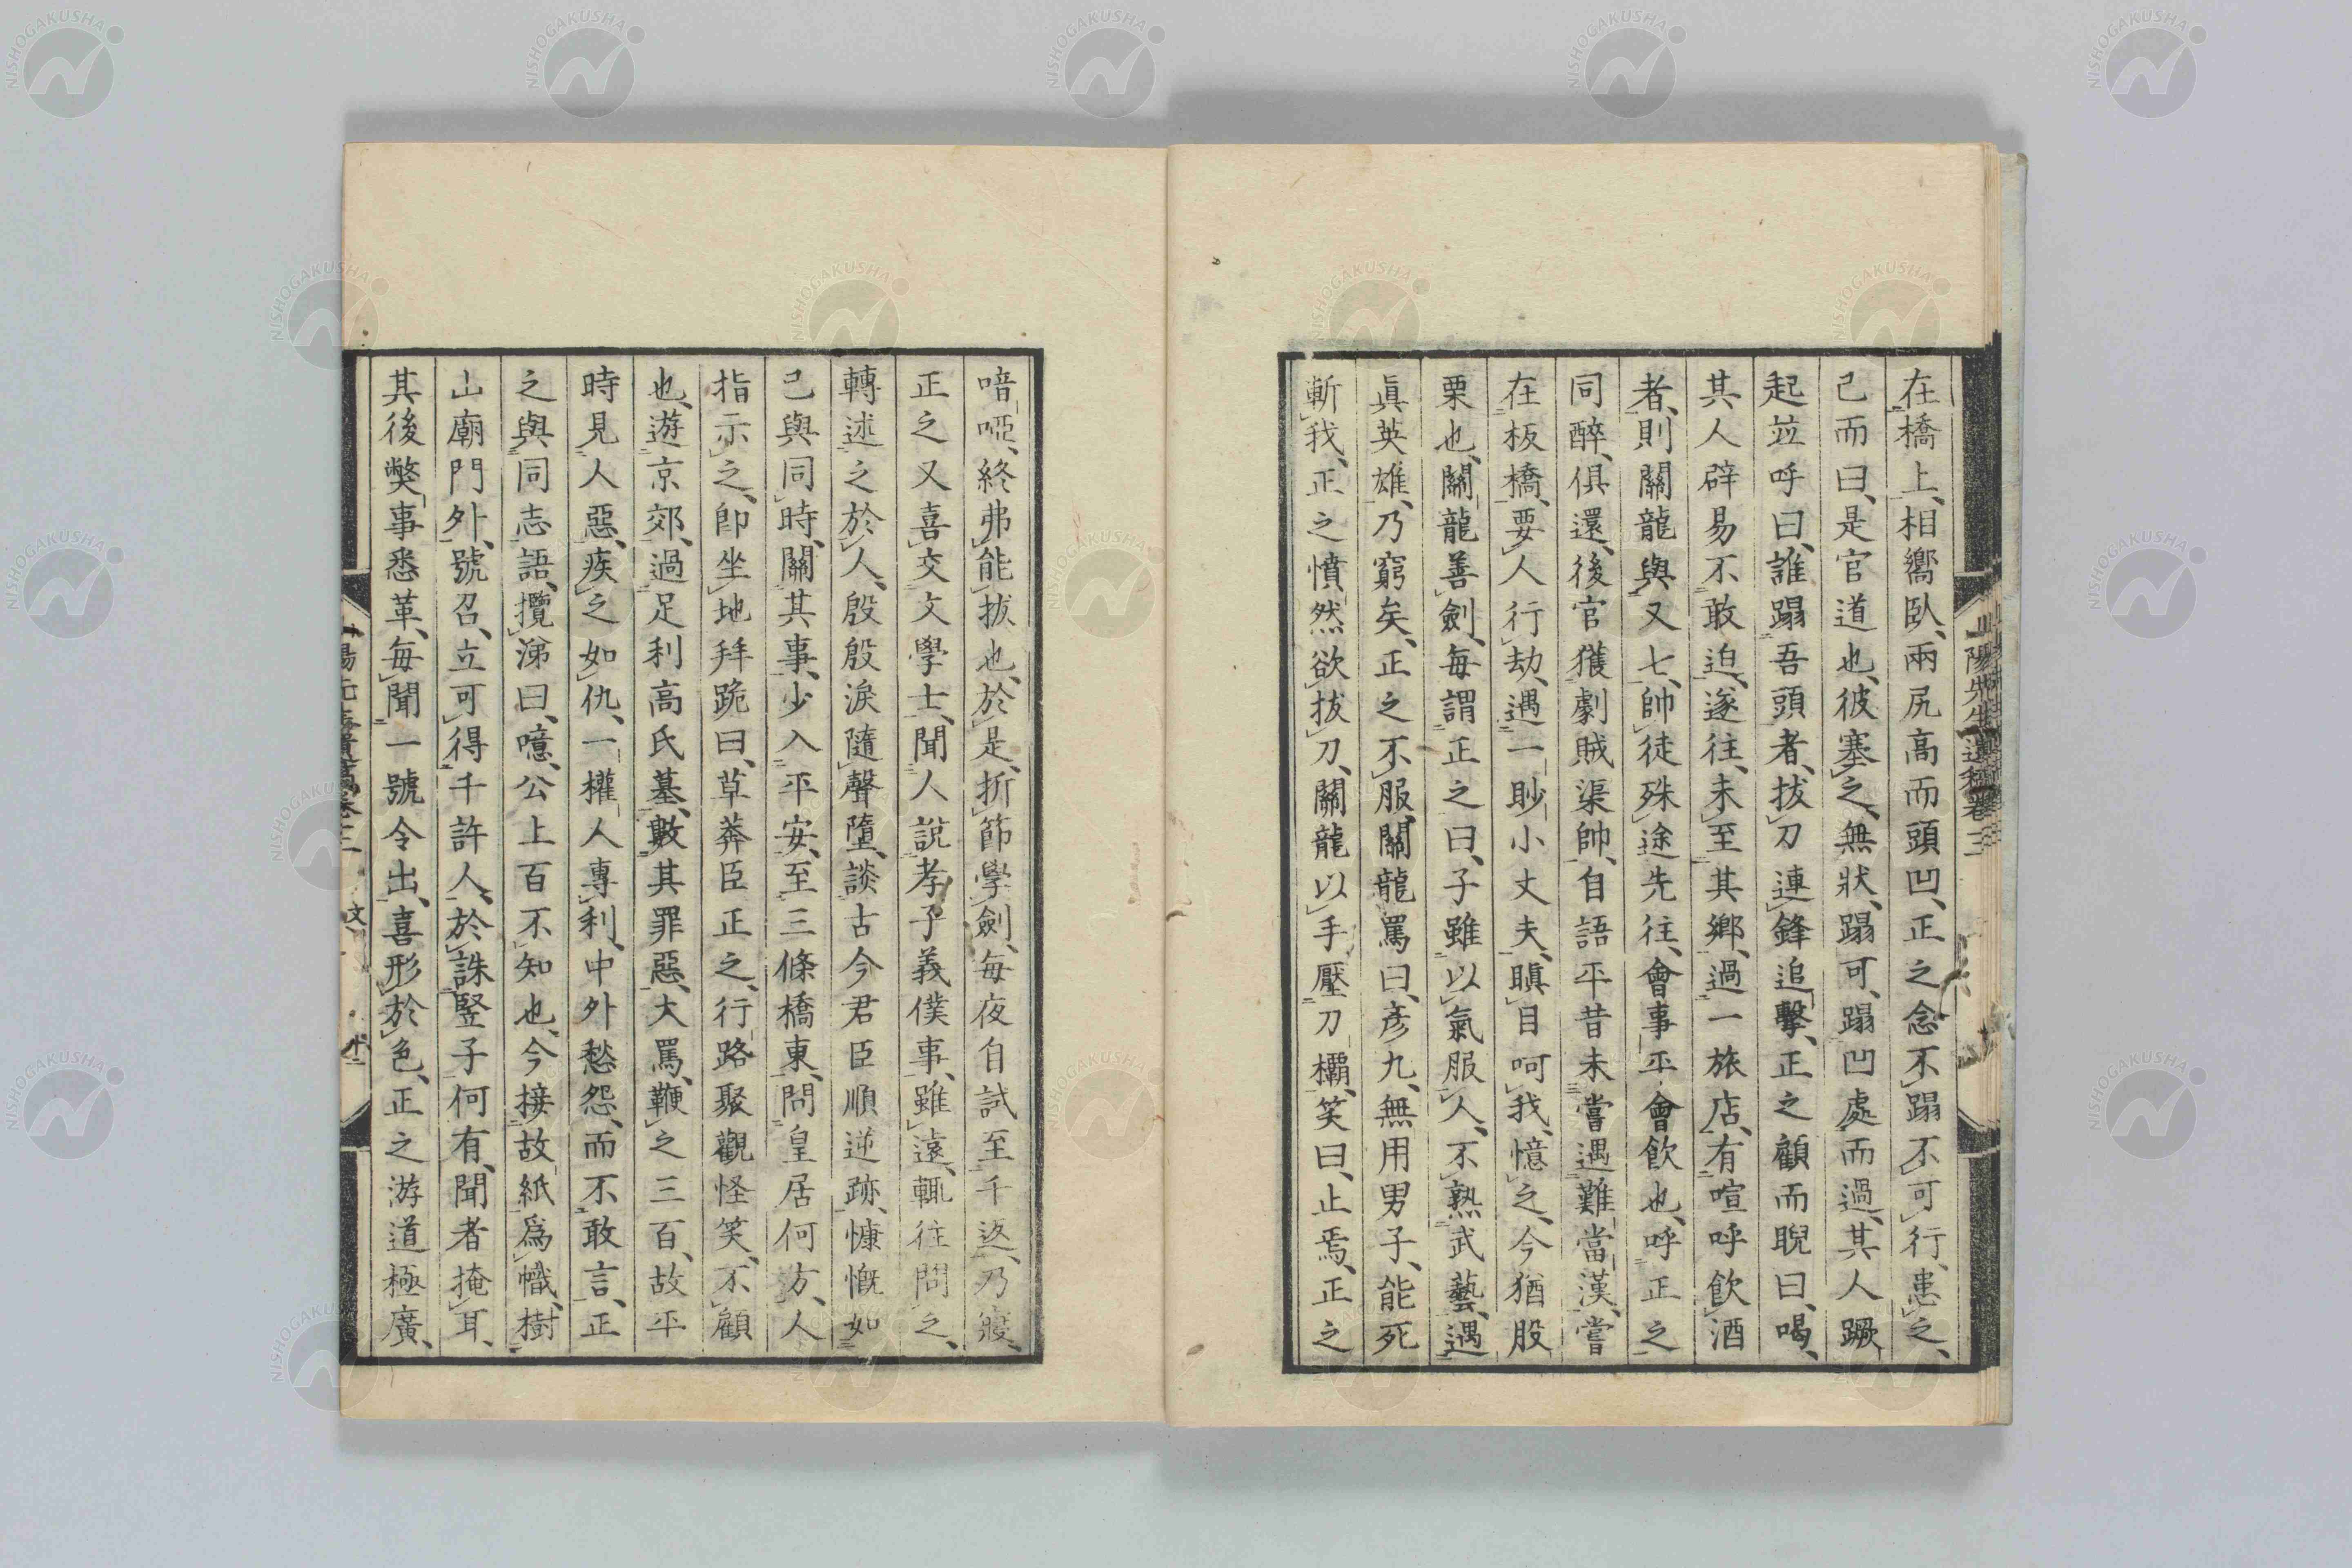 在橋上、相嚮臥、兩尻高而頭凹、正之念不蹋不可行、患之、
己而曰、是官道也、彼塞之、無狀、蹋可、蹋凹處而過、其人蹶
起竝呼曰、誰蹋吾頭者、拔刀連鋒追擊、正之顧而睨曰、喝、
其人辟易不敢迫、遂往、未至其鄉、過一旅店、有喧呼飲酒
者、則關龍與又七、帥徒殊途先往、會事平會飲也、呼正之
同醉、俱還、後官獲劇賊渠帥、自語平昔未嘗遇難當漢、嘗
在板橋、要人行劫、遇一眇小丈夫、瞋目呵我、憶之、今猶股
栗也、關龍善劍、每謂正之曰、子雖以氣服人、不熟武藝、遇
眞英雄、乃窮矣、正之不服、關龍罵曰、彥九、無用男子、能死
斬我、正之憤然欲拔刀、關龍以手壓刀欛、笑曰、止焉、正之
喑啞、終弗能拔也、於是、折節學劍、每夜自試至千返、乃寢、
正之又喜交文學士、聞人說孝子義僕事、雖遠、輒往問之、
轉述之於人、殷殷淚隨聲墮、談古今君臣順逆跡、慷慨如
己與同時、關其事、少入平安、至三條橋東、問皇居何方、人
指示之、卽坐地拜跪曰、草莽臣正之、行路聚觀怪笑、不顧
也、遊京郊、過足利高氏墓、數其罪惡、大罵、鞭之三百、故平
時見人惡、疾之如仇、一權人專利、中外愁怨、而不敢言、正
之與同志語、攬涕曰、噫、公上百不知也、今接故紙爲幟、樹
山廟門外、號召、立可得千許人、於誅豎子何有、聞者掩耳、
其後獘事悉革、每聞一號令出、喜形於色、正之游道極廣、
山陽先生遺稿卷三
文
NISHOGAKUSHA